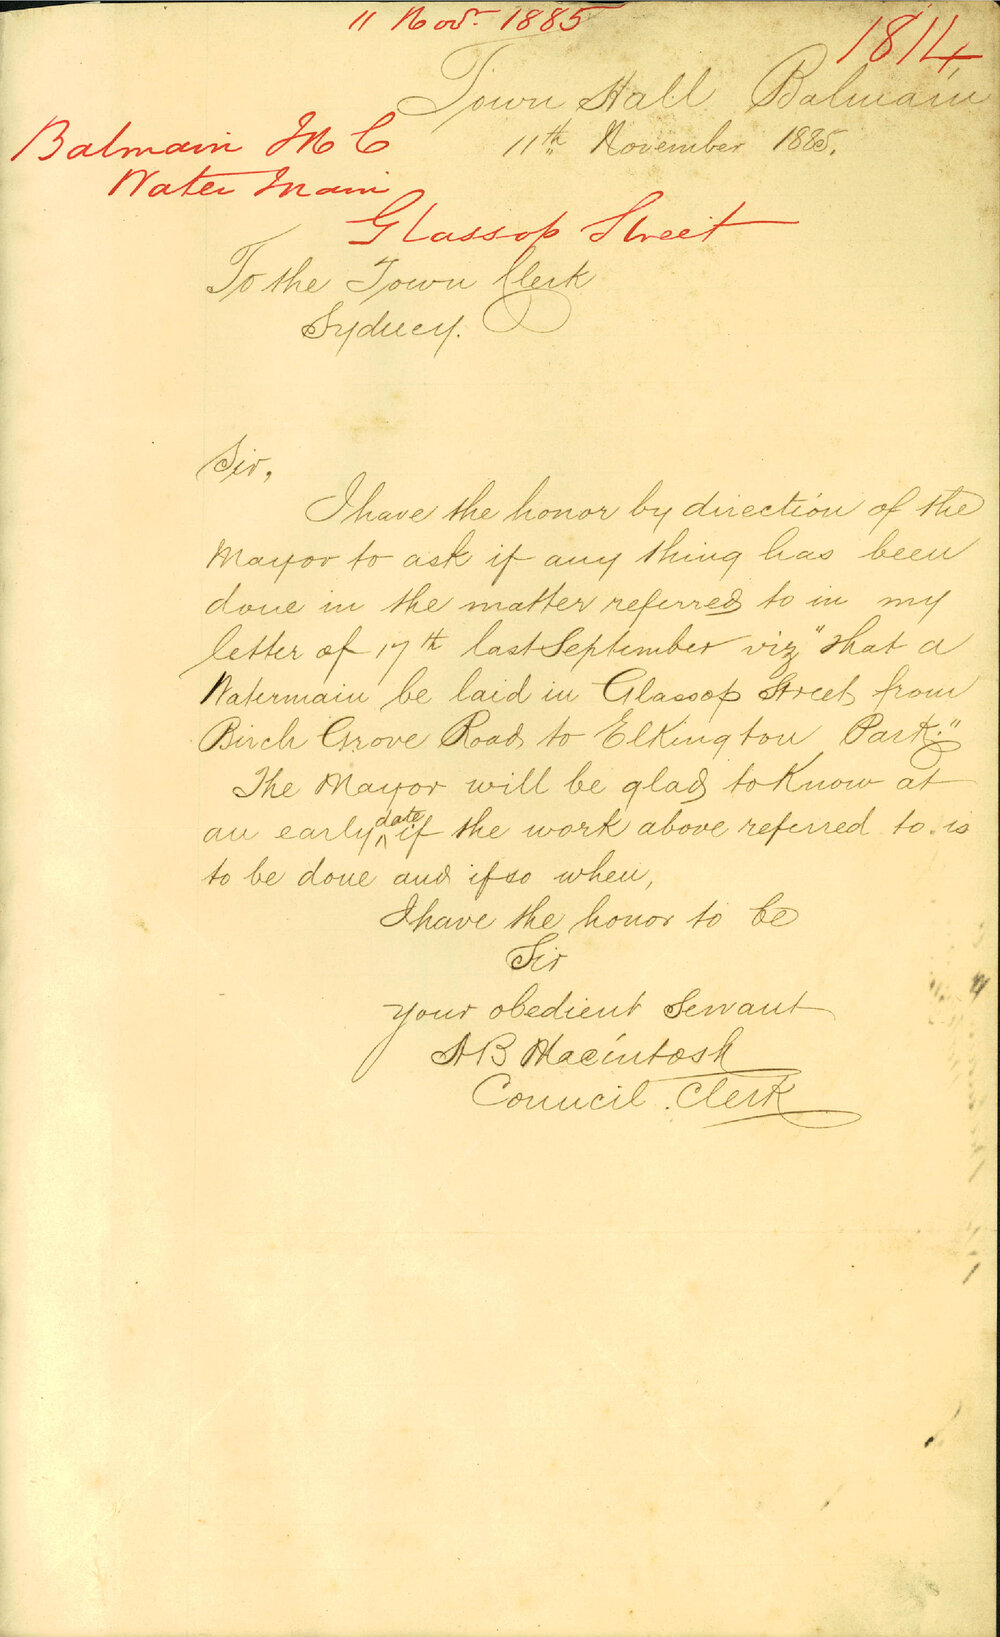 11 Novr. 1885
1814
Town Hall Balmain
11th November 1885.
Balmain M C
Water Main
Glassop Street
To the Town Clerk
Sydney.
Sir,
I have the honor by direction of the
Mayor to ask if any thing has been
done in the matter referred to in my
letter of 17th last September viz "that a
Watermain be laid in Glassop Street from
Birch Grove Road to Elkington Park."
The Mayor will be glad to know at
an early date if the work above referred to is
to be done and if so when,
I have the honor to be
Sir
your obedient Servant
A B Macintosh
Council Clerk